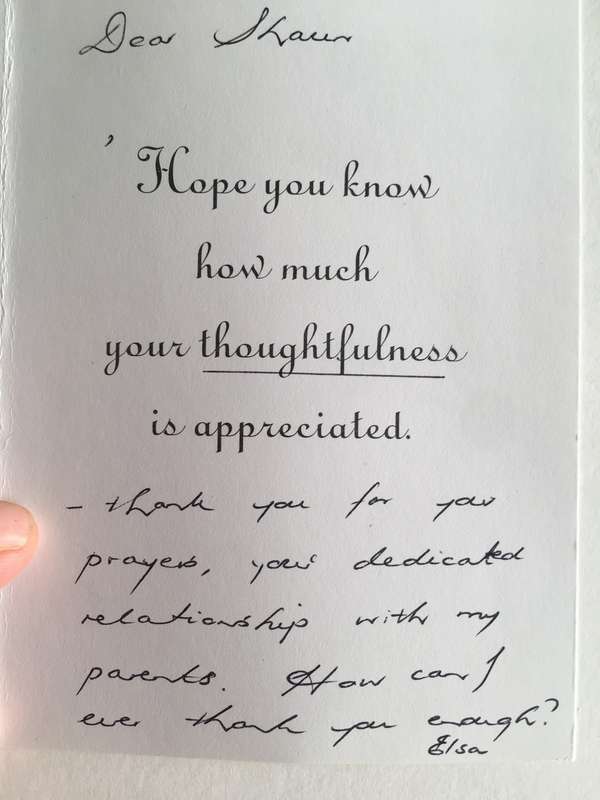 Dear Shaun
' Hope you know
how much
your thoughtfulness
is appreciated.
- thank you for your
prayers, your dedicated
relationship with my
parents. How can I
ever thank you enough?
Elsa